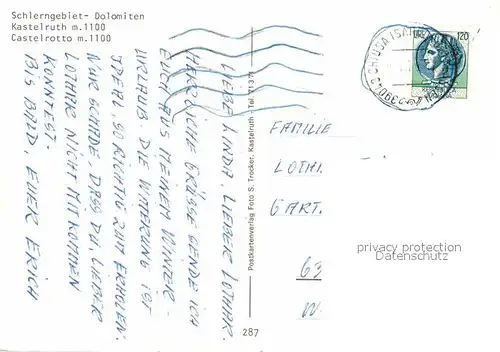 Schlerngebiet- Dolomiten
Kastelruth m.1100
Castelrotto m.1100
LIEBE LINDA, LIEBER LOTHAR.
HERZLICHE GRÜSSE SENDE ICH
EUCH AUS MEINEM WINTER-
URLAUB. DIE WITTERUNG IST
IDEAL, SO RICHTIG ZUM ERHOLEN.
NUR SCHADE, DASS DU LIEBER
LOTHAR NICHT MITKOMMEN
KONNTEST.
BIS BALD, EUER ERICH
Postkartenverlag Foto S. Trocker, Kastelruth Tel. 71 371
287
39043 CHIUSA
120
FAMILIE
LOTH
GART.
63
W
privacy protection
Datenschutz